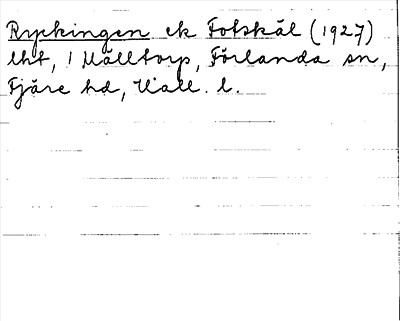 Ryckingen ek Fotskäl (1927)
lht, i Mälltorp, Förlanda sn,
Fjäre hd, Hall. l.